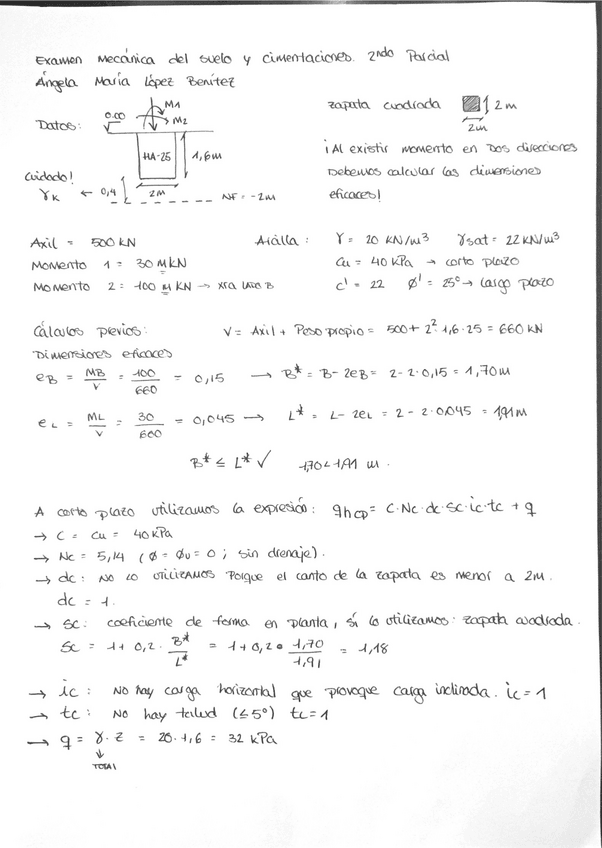 Examen Mecánica del suelo y cimentaciones. 2ndo Parcial
Ángela María López Benítez
Datos:
0.00
M1
M2
HA-25
1,6m
2M
Cuidado!
γk ← 0,4
NF = -2m
zapata cuadrada
2m
2m
¡Al existir momento en Dos direcciones
Debemos calcular las dimensiones
eficaces!
Axil = 500 kN
Momento 1 = 30 MKN
Momento 2 = 100 M KN → xra lado B
Arcilla: γ = 20 KN/m³ γsat = 22 KN/m³
Cu = 40 kPa → corto plazo
C' = 22 ϕ' = 25° → Largo plazo
Cálculos previos: V = Axil + Peso propio = 500 + 2²·1,6·25 = 660 kN
Dimensiones eficaces
eB = MB/V = 100/660 = 0,15 → B* = B - 2eB = 2 - 2·0,15 = 1,70m
eL = ML/V = 30/660 = 0,045 → L* = L - 2eL = 2 - 2·0,045 = 1,91m
B* ≤ L* ✓ 1,70 < 1,91 m.
A corto plazo utilizamos la expresión: qhcp = C·Nc·dc·sc·ic·tc + q
→ C = Cu = 40 kPa
→ Nc = 5,14 (ϕ = ϕu = 0; sin drenaje).
→ dc: No lo utilizamos porque el canto de la zapata es menor a 2m.
dc = 1.
→ Sc: coeficiente de forma en planta, sí lo utilizamos: zapata cuadrada.
Sc = 1 + 0,2 · B*/L* = 1 + 0,2 · 1,70/1,91 = 1,18
→ ic: No hay carga horizontal que provoque carga inclinada. ic = 1
→ tc: No hay talud (≤5°) tc = 1
→ q = γ·z = 20·1,6 = 32 kPa
↓
TOTAL